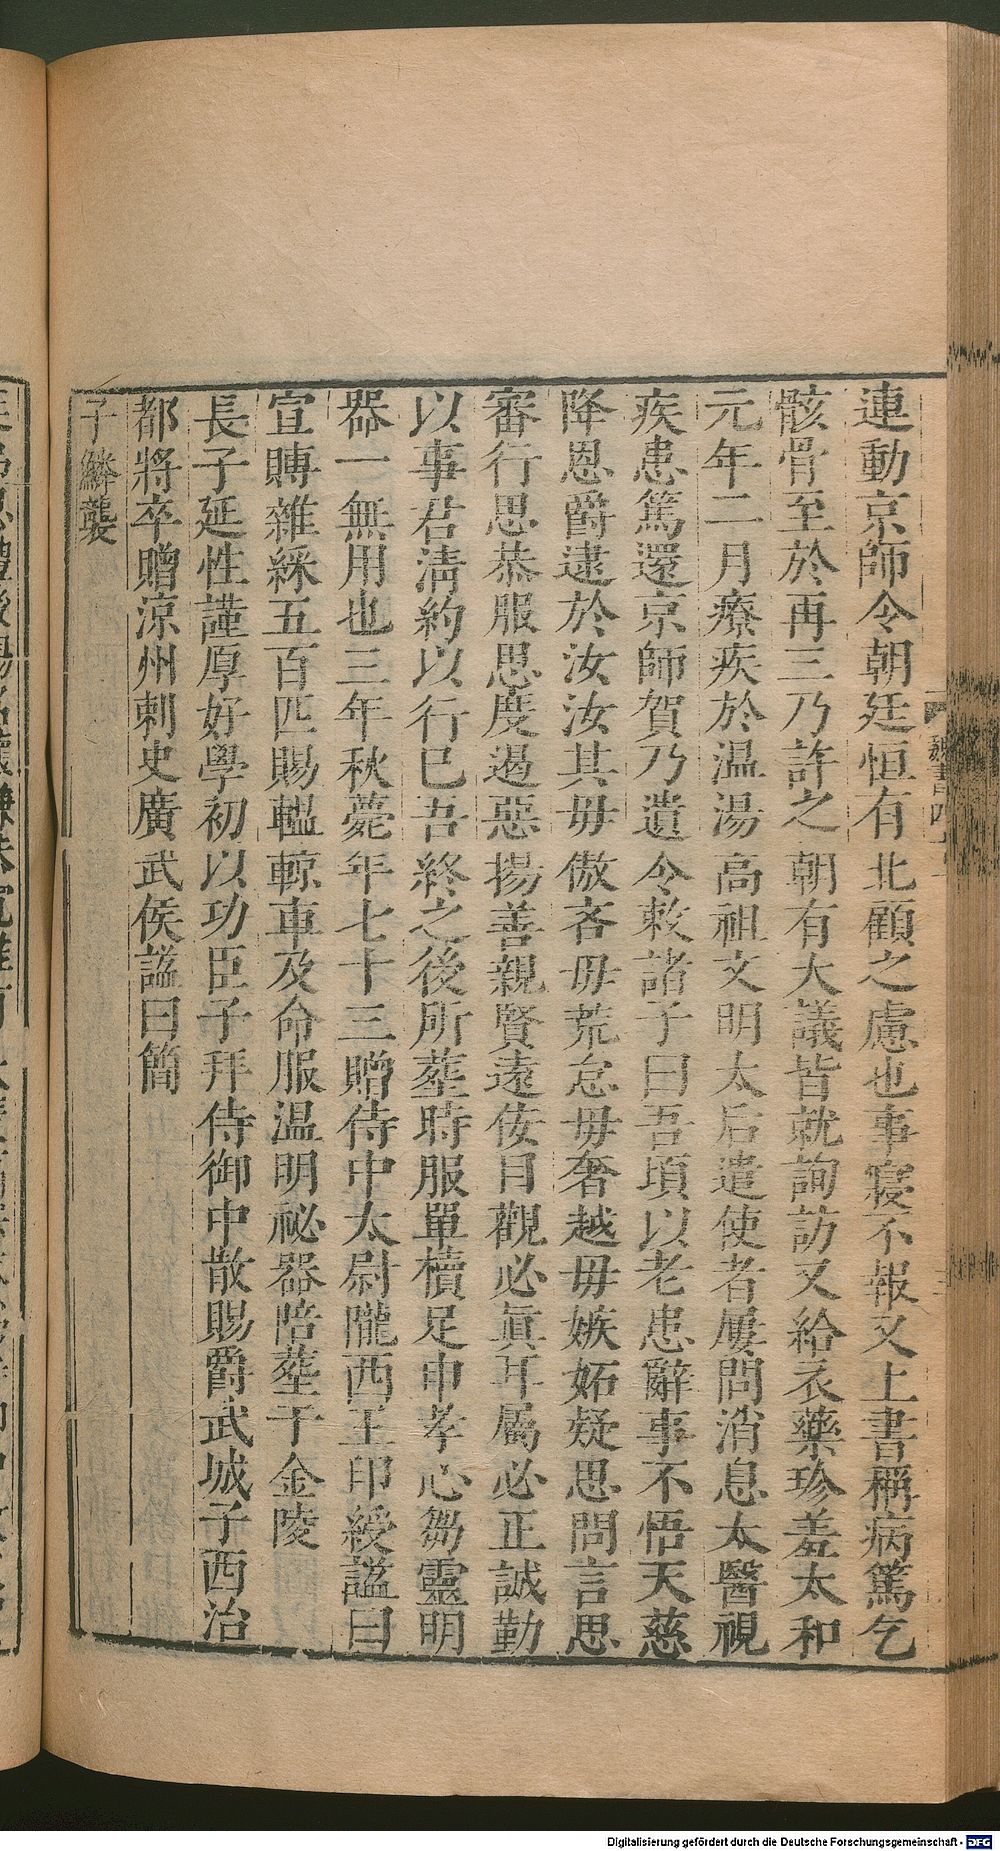 連動京師令朝廷恒有北顧之慮也事寢不報又上書稱病篤乞
骸骨至於再三乃許之朝有大議皆就詢訪又給衣藥珍羞太和
元年二月療疾於温湯高祖文明太后遣使者屢問消息太醫視
疾患篤還京師賀乃遺令敕諸子曰吾頃以老患辭事不悟天慈
降恩爵逮於汝汝其毋傲吝毋荒怠毋奢越毋嫉妬疑思問言思
審行思恭服思度遏惡揚善親賢遠佞目觀必眞耳屬必正誠勤
以事君淸約以行已吾終之後所葬時服單櫝足申孝心芻靈明
器一無用也三年秋薨年七十三贈侍中太尉隴西王印綬謚曰
宣賻雜綵五百匹賜轀輬車及命服温明祕器陪葬于金陵
長子延性謹厚好學初以功臣子拜侍御中散賜爵武城子西治
都將卒贈涼州刺史廣武侯謚曰簡
子鱗襲
Digitalisierung gefördert durch die Deutsche Forschungsgemeinschaft - DFG